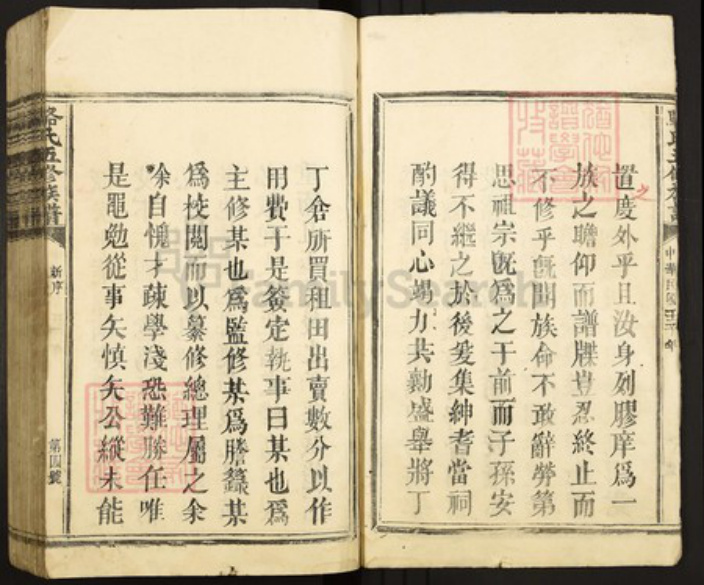 置度外乎且汝身列膠庠爲一
族之瞻仰而譜牒豈忍終止而
不修乎旣聞族命不敢辭勞第
思祖宗旣爲之于前而子孫安
得不繼之於後爰集紳耆當祠
酌議同心竭力共勷盛舉將丁
丁倉所買租田出賣數分以作
用費于是簽定執事曰某也爲
主修某也爲監修某爲謄錄某
爲校閱而以纂修總理屬之余
余自愧才疎學淺恐難勝任唯
是黽勉從事矢慎矢公縱未能
駱氏五修族譜
新序
第四號
FamilySearch